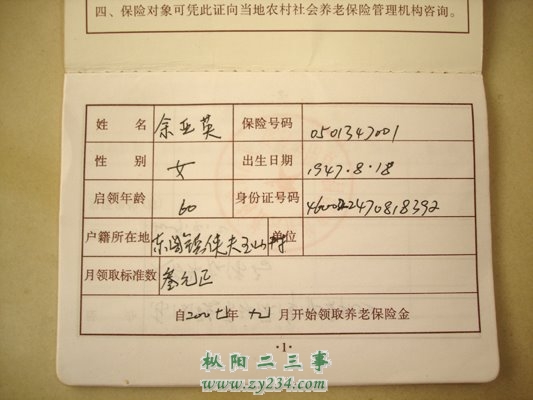 四、保险对象可凭此证向当地农村社会养老保险管理机构咨询。
姓 名 余亚英 保险号码 0501347001
性 别 女 出生日期 1947.8.18
启领年龄 60 身份证号码
户籍所在地 单位
月领取标准数 叁元正
自200 年 月开始领取养老保险金
·1·
枞阳二三事
www.zy234.com